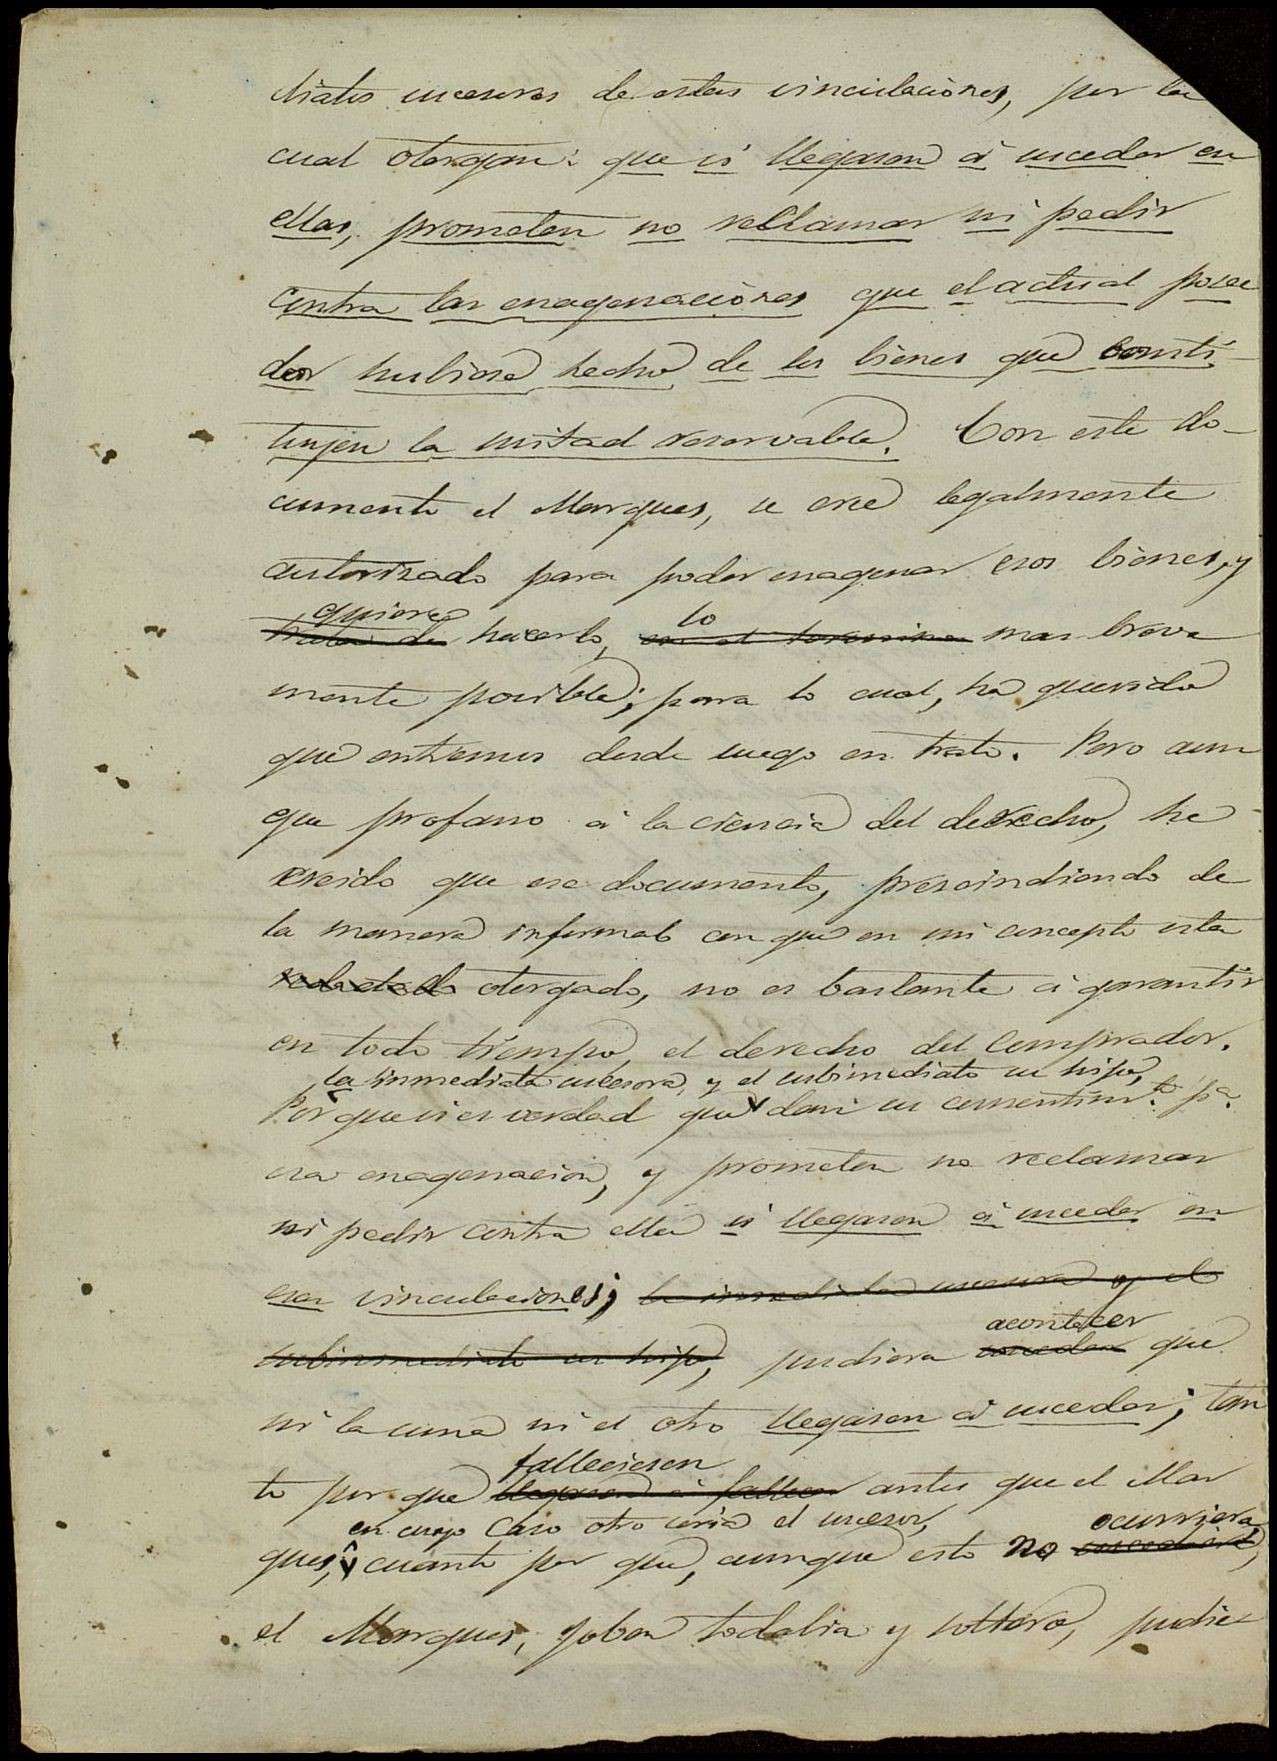 diatos sucesores de estas vinculaciones, por la
cual otorgan: que si llegasen á suceder en
ellas, prometen no reclamar ni pedir
contra las enagenaciones que el actual posee
dor hubiese hecho de los bienes que consti-
tuyen la mitad reservable. Con este do-
cumento el Marques, se cree legalmente
autorizado para poder enagenar esos bienes, y
quiere lo
trata de hacerlo, en el termino mas breve
mente posible; para lo cual, ha querido
que entremos desde luego en trato. Pero aun
que profano á la ciencia del derecho, he
creido que ese documento, prescindiendo de
la manera informal con que en mi concepto esta
redactado otorgado, no es bastante á garantir
en todo tiempo, el derecho del Comprador.
la inmediata sucesora, y el subinmediato su hijo,
Por que si es verdad que dan su consentim.to p.a
esa enagenacion, y prometen no reclamar
ni pedir contra ella si llegasen á suceder en
esas vinculaciones; la inmediata sucesora y el
acontecer
subinmediato su hijo, pudiera suceder que
ni la una ni el otro llegasen á suceder; tan
falleciesen
to por que llegasen á fallecer antes que el Mar
en cuyo caso otro seria el sucesor, ocurriera
ques, y cuanto por que, aunque esto no sucediera,
el Marques, joben todabia y soltero, pudie